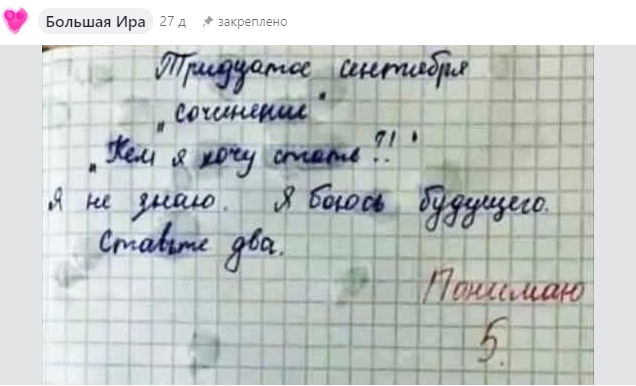 Большая Ира 27 д закреплено
Тридцатое сентября
„сочинение"
„Кем я хочу стать?!"
Я не знаю. Я боюсь будущего.
Ставьте два.
Понимаю
5.